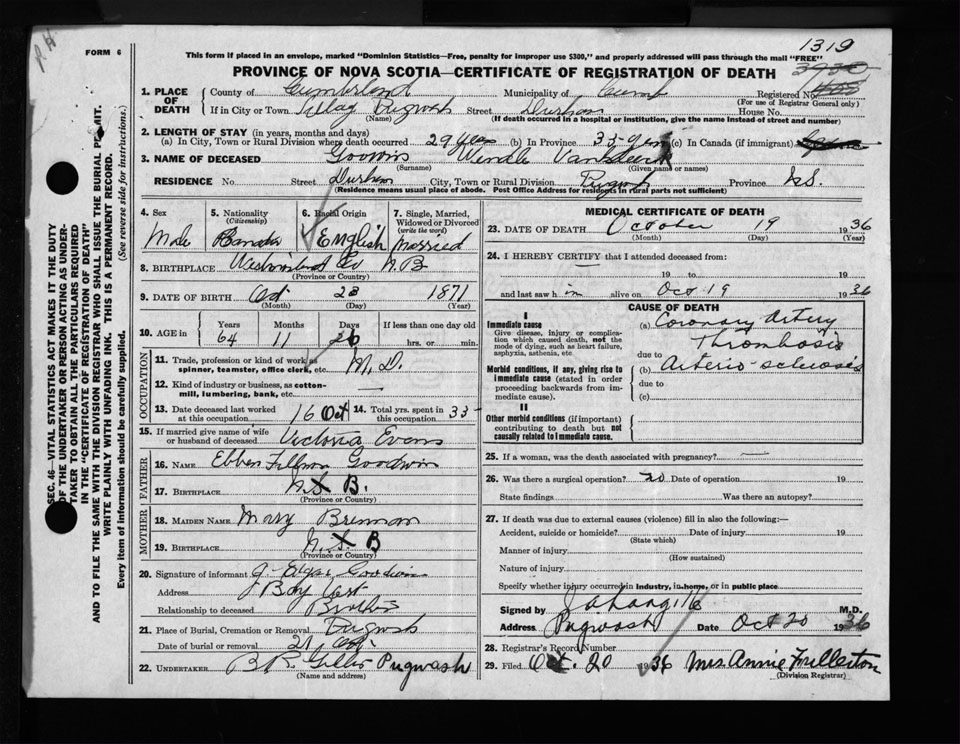 P. H.
FORM 6
1319
This form if placed in an envelope, marked "Dominion Statistics—Free, penalty for improper use $300," and properly addressed will pass through the mail "FREE"
PROVINCE OF NOVA SCOTIA—CERTIFICATE OF REGISTRATION OF DEATH
1. PLACE OF DEATH
County of Cumberland Municipality of Cumb Registered No.
(For use of Registrar General only)
If in City or Town Pugwash Street Durham House No.
(Name) (If death occurred in a hospital or institution, give the name instead of street and number)
2. LENGTH OF STAY (in years, months and days)
(a) In City, Town or Rural Division where death occurred 29 years (b) In Province 33 years (c) In Canada (if immigrant)
3. NAME OF DECEASED Goodwin Wendle Vansleerk
(Surname) (Given name or names)
RESIDENCE No. Street Durham City, Town or Rural Division Pugwash Province N.S.
(Residence means usual place of abode. Post Office Address for residents in rural parts not sufficient)
4. Sex Male
5. Nationality (Citizenship) Canada
6. Racial Origin English
7. Single, Married, Widowed or Divorced (write the word) Married
8. BIRTHPLACE Westmorland Co N B
(Province or Country)
9. DATE OF BIRTH Oct 23 1871
(Month) (Day) (Year)
10. AGE in Years Months Days If less than one day old
64 11 26 hrs. or min.
OCCUPATION
11. Trade, profession or kind of work as spinner, teamster, office clerk, etc. M. D.
12. Kind of industry or business, as cotton-mill, lumbering, bank, etc. —
13. Date deceased last worked at this occupation 16 Oct 14. Total yrs. spent in this occupation 33
15. If married give name of wife or husband of deceased Victoria Evans
FATHER
16. NAME Ebben Goodwin
17. BIRTHPLACE N. B.
(Province or Country)
MOTHER
18. MAIDEN NAME Mary Brennan
19. BIRTHPLACE N. B
(Province or Country)
20. Signature of informant J. Edgar Goodwin
Address Bay Vert
Relationship to deceased Brother
21. Place of Burial, Cremation or Removal Pugwash
Date of burial or removal 21 Oct.
22. UNDERTAKER Pugwash
(Name and address)
MEDICAL CERTIFICATE OF DEATH
23. DATE OF DEATH October 19 1936
(Month) (Day) (Year)
24. I HEREBY CERTIFY that I attended deceased from:
19 to 19
and last saw him alive on Oct 19 1936
CAUSE OF DEATH
I
Immediate cause
Give disease, injury or complication which caused death, not the mode of dying, such as heart failure, asphyxia, asthenia, etc.
(a) Coronary Artery
Thrombosis
due to
Morbid conditions, if any, giving rise to immediate cause (stated in order proceeding backwards from immediate cause).
(b) Arterio sclerosis
due to
(c)
II
Other morbid conditions (if important) contributing to death but not causally related to immediate cause.
25. If a woman, was the death associated with pregnancy? —
26. Was there a surgical operation? no Date of operation 19
State findings Was there an autopsy?
27. If death was due to external causes (violence) fill in also the following:—
Accident, suicide or homicide? Date of injury 19
(State which)
Manner of injury
(How sustained)
Nature of injury
Specify whether injury occurred in industry, in home, or in public place
Signed by M.D.
Address Pugwash Date Oct 20 1936
28. Registrar's Record Number
29. Filed Oct. 20 1936 Mrs. Annie Fullerton
(Division Registrar)
SEC. 46—VITAL STATISTICS ACT MAKES IT THE DUTY
OF THE UNDERTAKER OR PERSON ACTING AS UNDER-
TAKER TO OBTAIN ALL THE PARTICULARS REQUIRED
IN THE "CERTIFICATE OF REGISTRATION OF DEATH"
AND TO FILE THE SAME WITH THE DIVISION REGISTRAR WHO SHALL ISSUE THE BURIAL PERMIT.
WRITE PLAINLY WITH UNFADING INK. THIS IS A PERMANENT RECORD.
Every item of information should be carefully supplied. (See reverse side for instructions.)